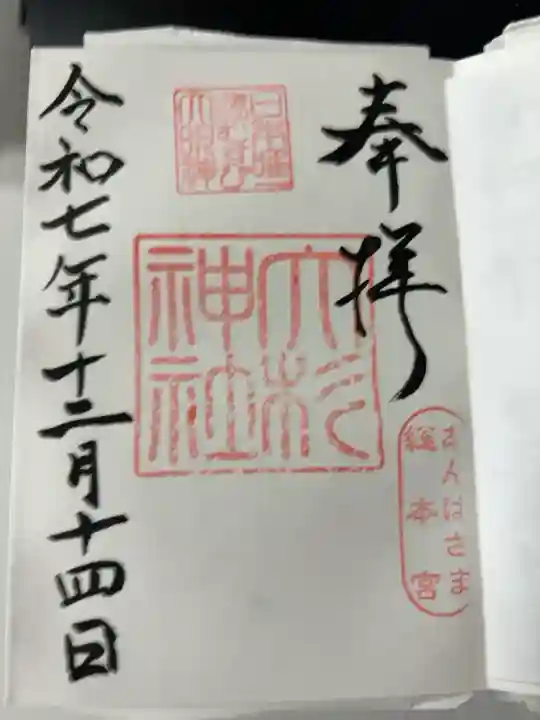 奉拝
あんばさま
総本宮
大杉
神社
令和七年十二月十四日